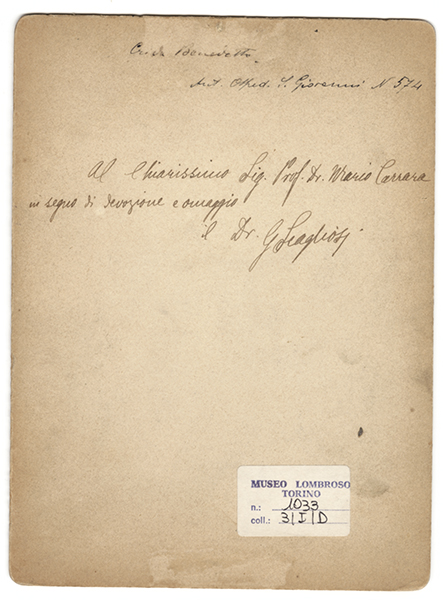 Benedetto
Aut. Osped. S. Giovanni N 574
Al Chiarissimo Sig. Prof. Dr. Mario Carrara
in segno di devozione e omaggio
il Dr. G
MUSEO LOMBROSO
TORINO
n.: 1033
coll.: 3/I/D